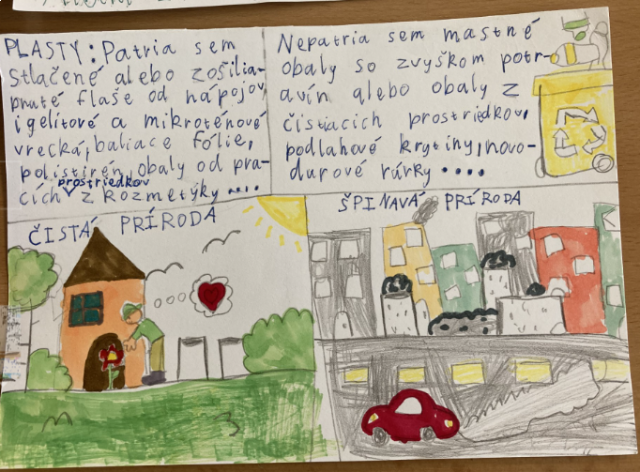 PLASTY: Patria sem
stlačené alebo zošlia-
pnuté fľaše od nápojov,
igelitové a mikroténové
vrecká, baliace fólie,
polistirén, obaly od pra-
cích prostriedkov z kozmetyky....
Nepatria sem mastné
obaly so zvyškom potr-
avín alebo obaly z
čistiacich prostriedkov,
podlahové krytiny, novo-
durové rúrky....
ČISTÁ PRÍRODA
ŠPINAVÁ PRÍRODA